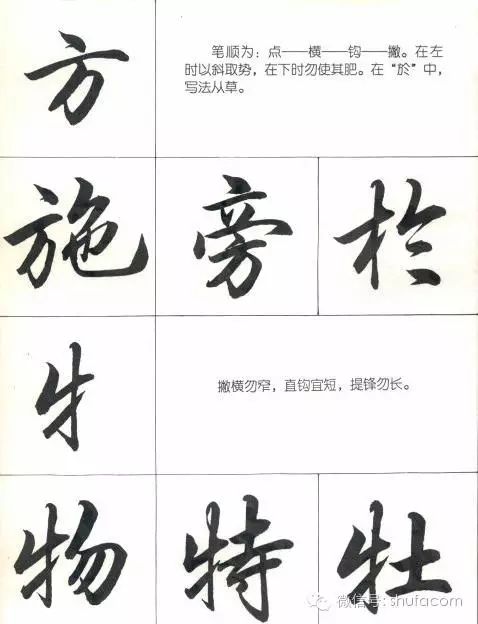 方
笔顺为：点——横——钩——撇。在左
时以斜取势，在下时勿使其肥。在“於”中，
写法从草。
施 旁 於
牜
撇横勿窄，直钩宜短，提锋勿长。
物 特 牡
微信号: shufacom